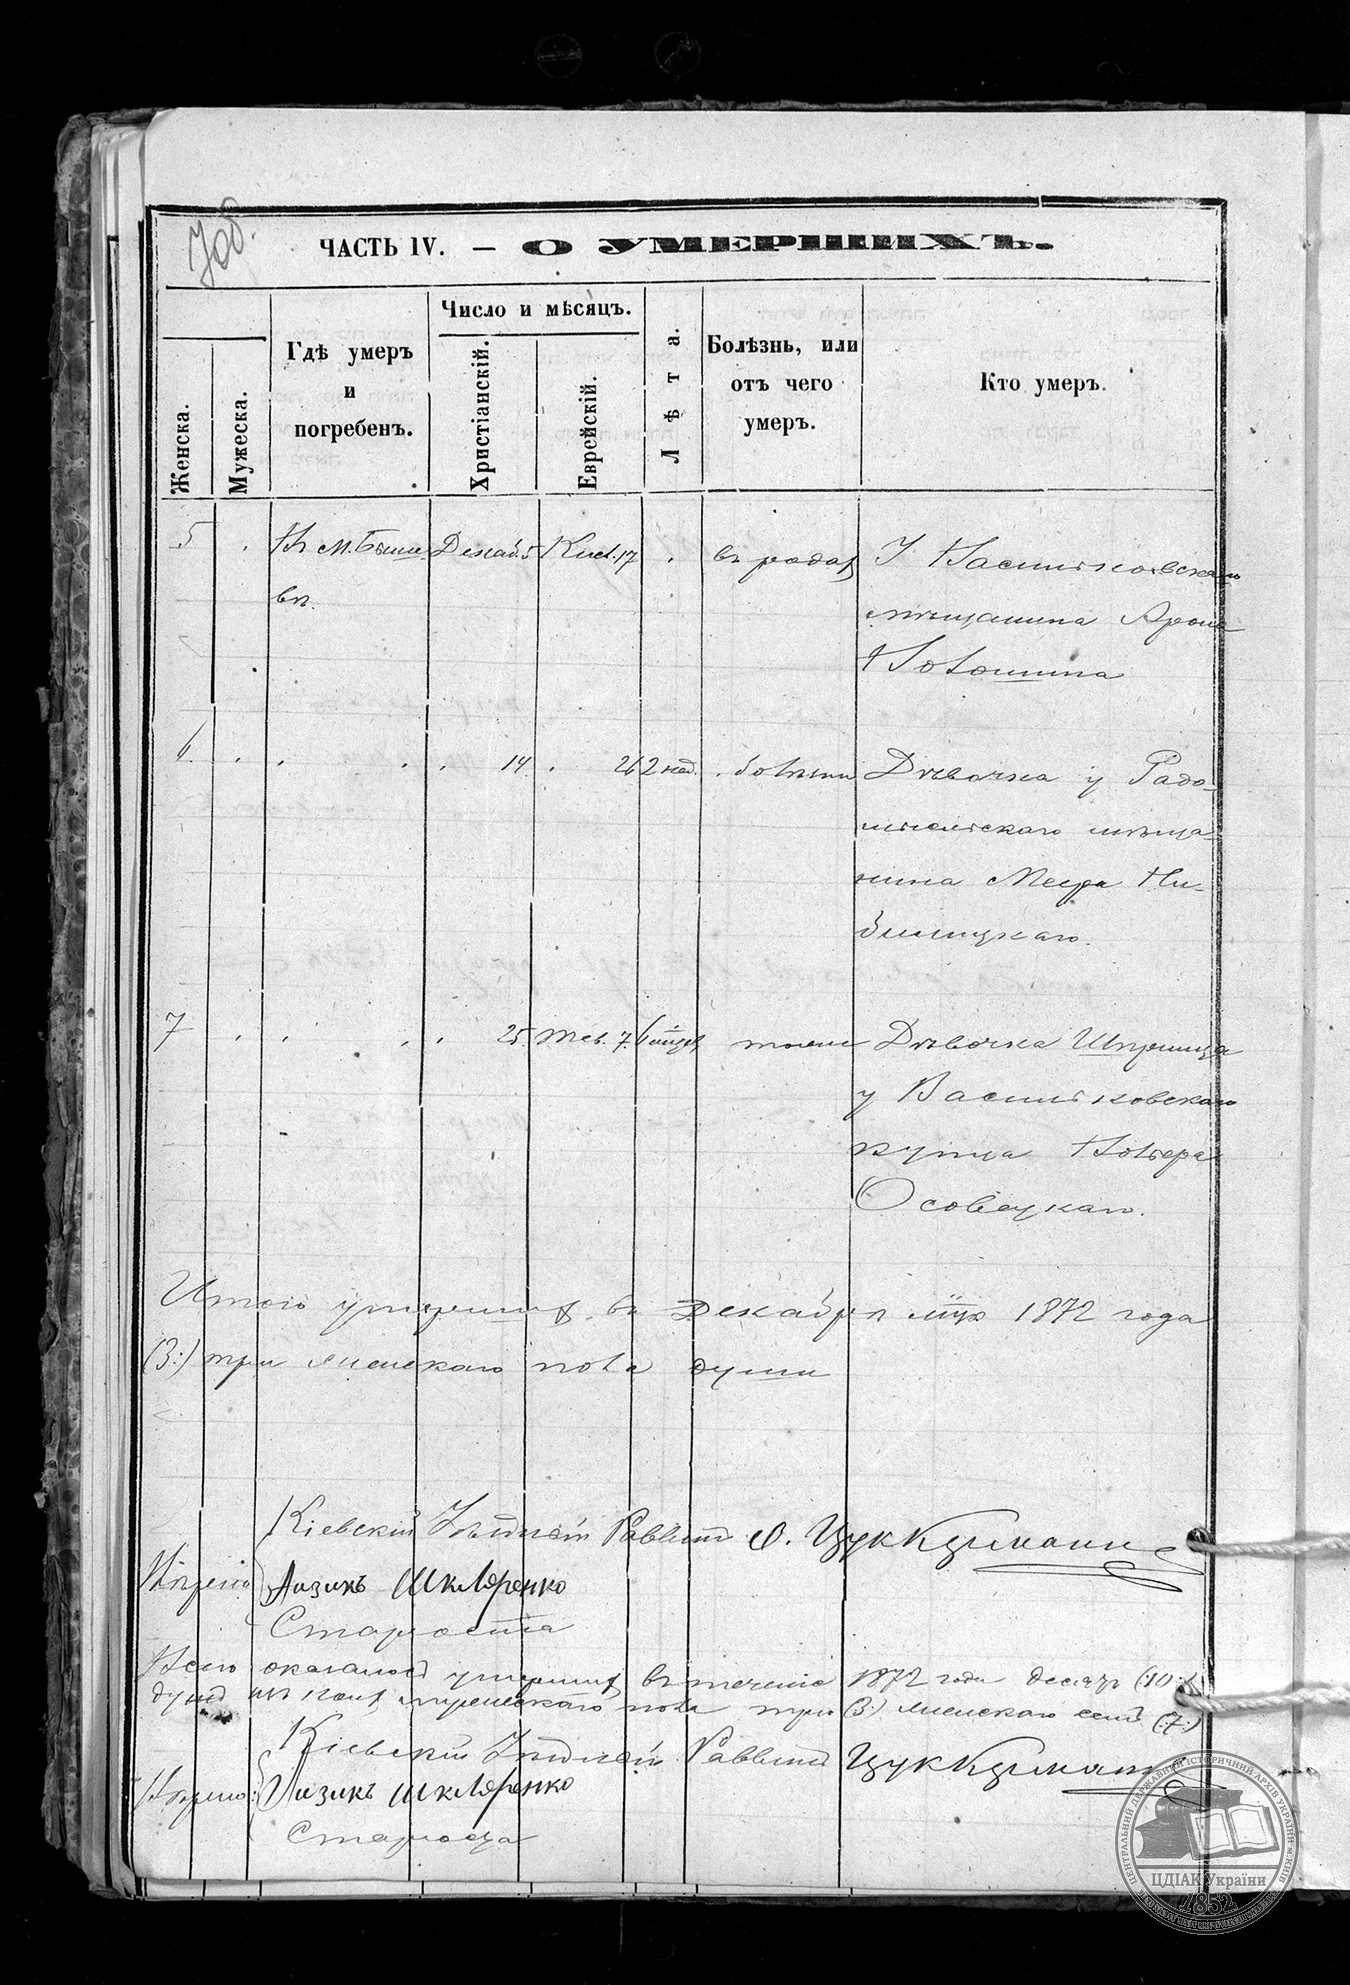 70б.
ЧАСТЬ IV. — О УМЕРШИХЪ.
Женска.
Мужеска.
Гдѣ умеръ
и
погребенъ.
Число и мѣсяцъ.
Христіанскій.
Еврейскій.
Лѣта.
Болѣзнь, или
отъ чего
умеръ.
Кто умеръ.
5 Въ м. Быше Декаб. 5 Кисл. 17 въ родах У Васильковскаго
вѣ. мѣщанина Арона
Волошина
6 14 26 2 нед. болѣзни Дѣвочка у Радо-
мысльскаго мѣща-
нина Меера
7 25. Тев. 7. Дѣвочка Шпринца
у Васильковскаго
купца Вольера
Осовецкаго.
Итого умершихъ въ Декабрѣ мцѣ 1872 года
(3:) три женскаго пола души
Кіевскій Раввинъ О. Цуккерманъ
Вѣрно Айзикъ Шкляренко
Староста
Всего оказалось умершихъ въ теченіе 1872 года десять (10:)
душъ изъ коихъ мужескаго пола три (3:) женскаго семь (:7:)
Кіевскій Раввинъ Цуккерманъ
Вѣрно: Айзикъ Шкляренко
Староста
ЦЕНТРАЛЬНИЙ ДЕРЖАВНИЙ ІСТОРИЧНИЙ АРХІВ УКРАЇНИ м. КИЇВ
ЦДІАК України
1852